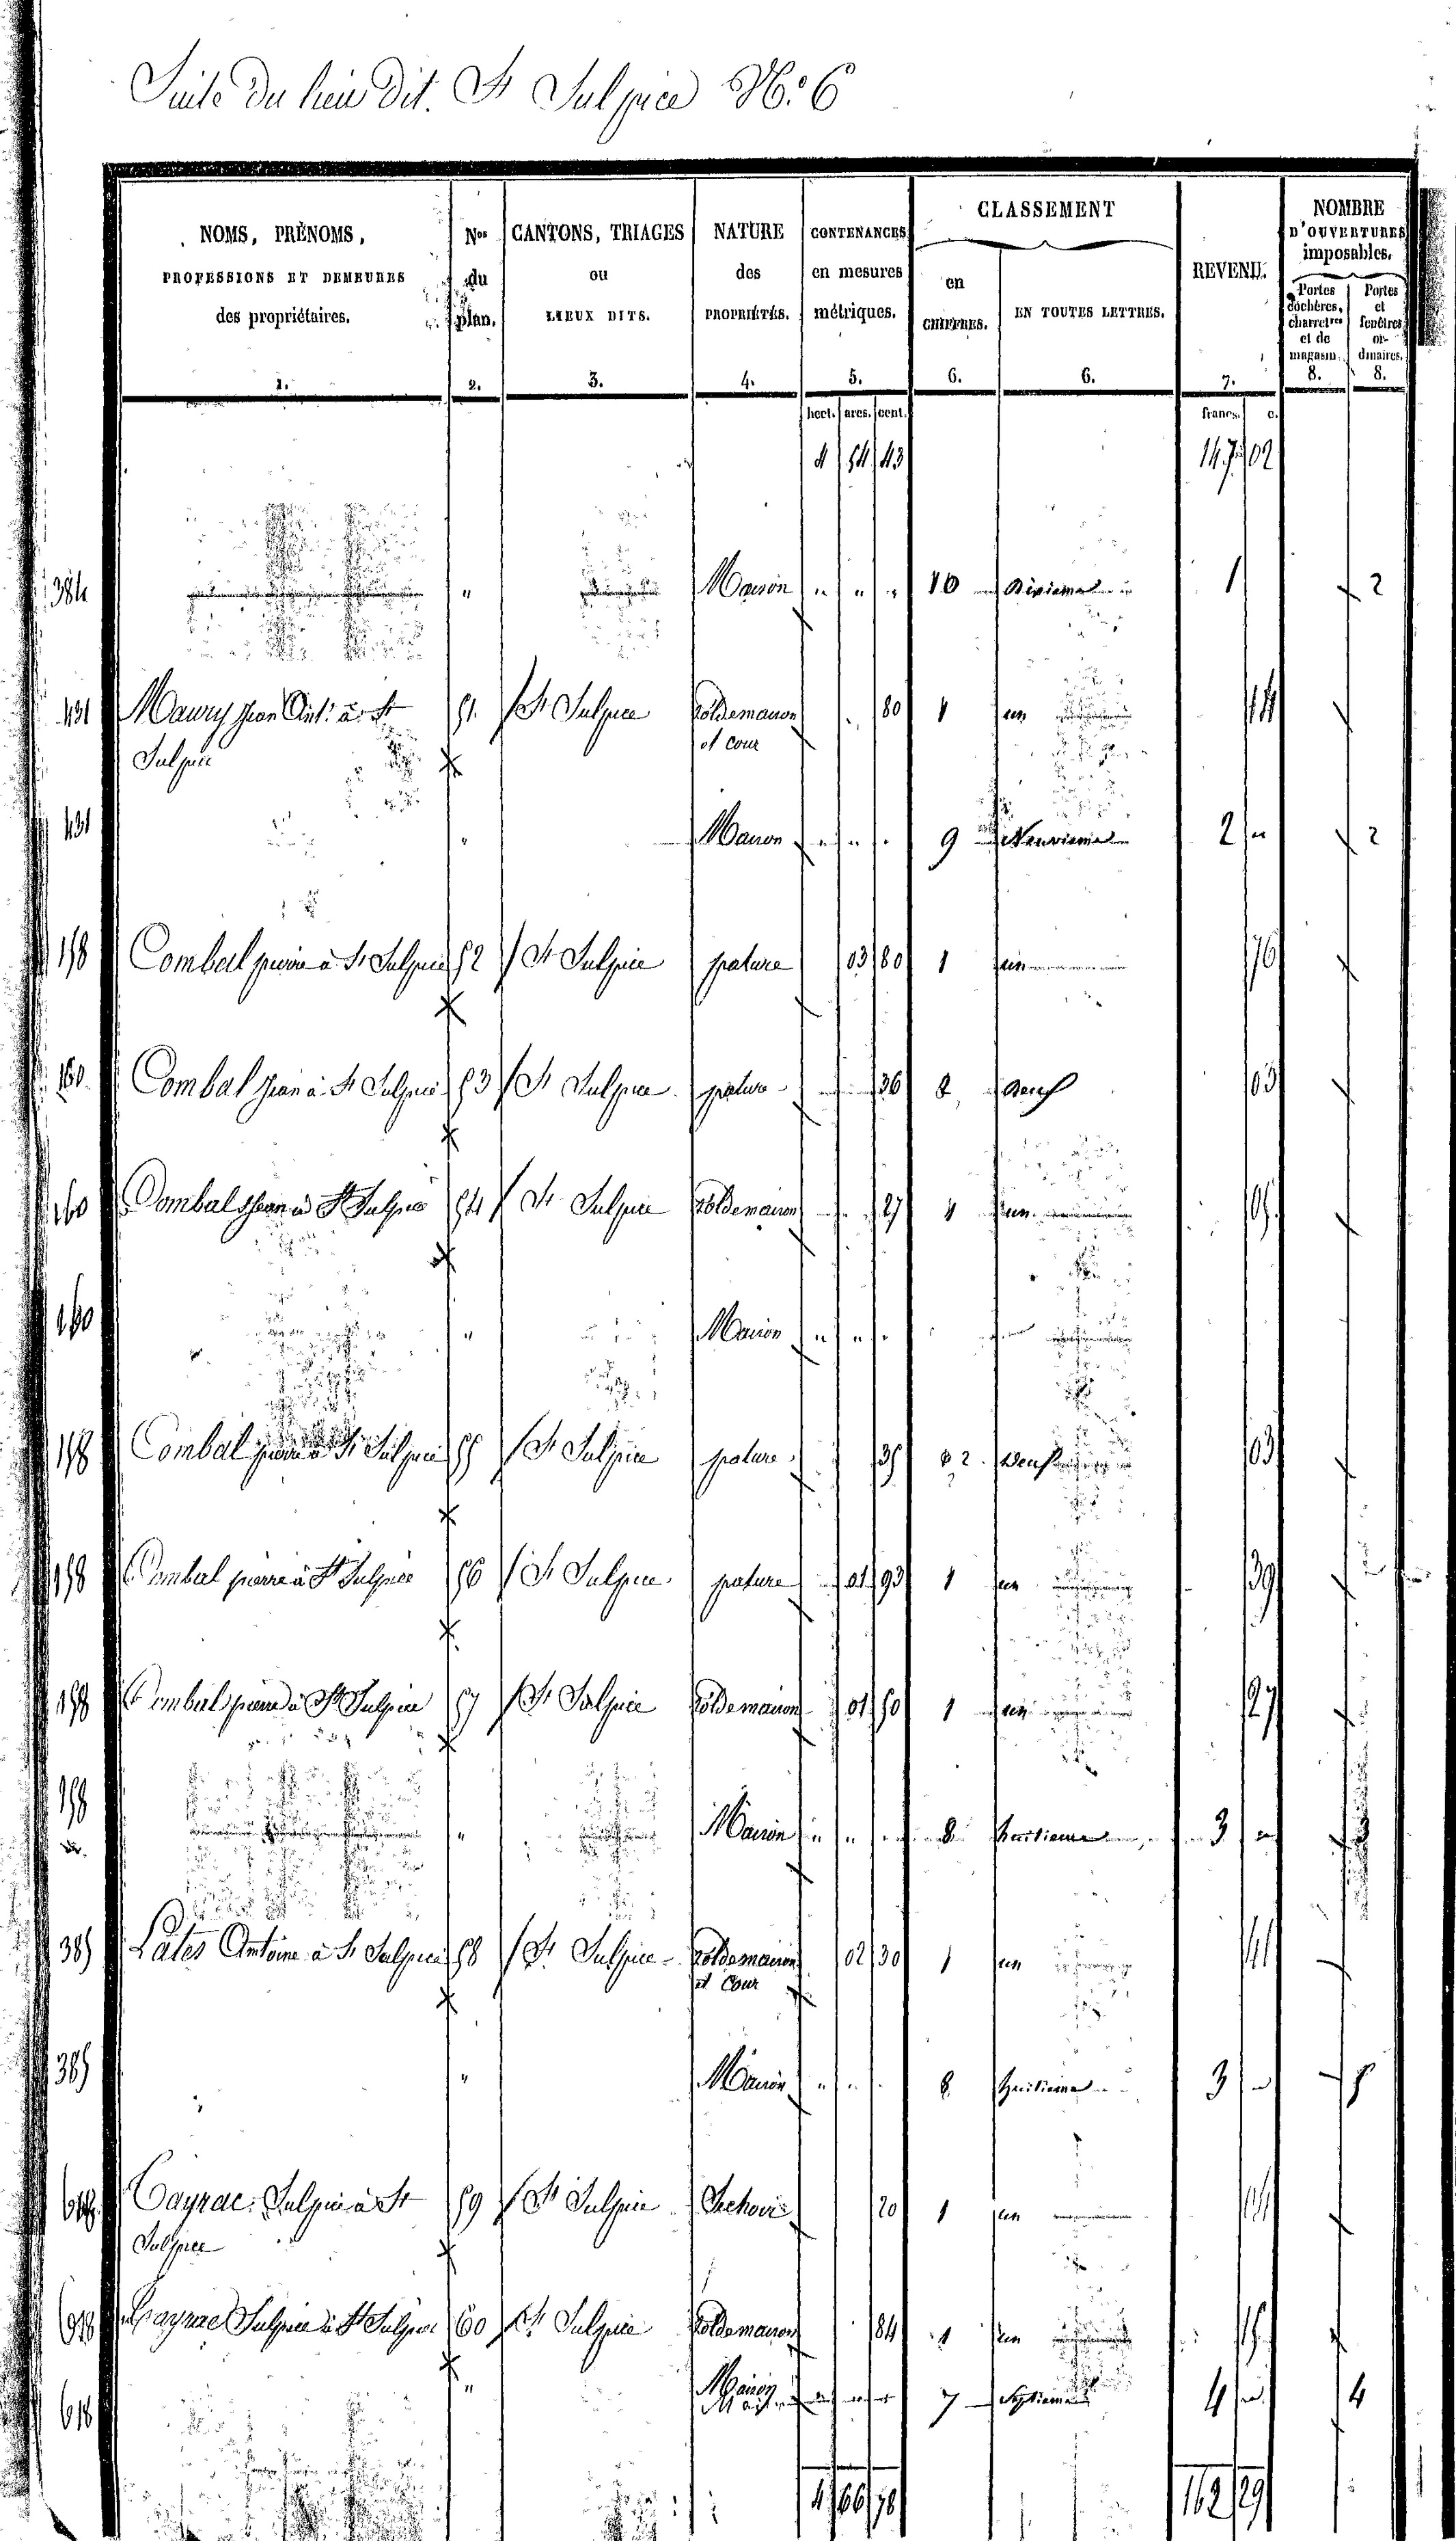 Suite du lieu dit. St Sulpice N.° 6
NOMS, PRÉNOMS, PROFESSIONS ET DEMEURES des propriétaires. 1.
Nos du plan. 2.
CANTONS, TRIAGES ou LIEUX DITS. 3.
NATURE des PROPRIÉTÉS. 4.
CONTENANCES en mesures métriques. 5.
CLASSEMENT
en CHIFFRES. 6.
EN TOUTES LETTRES. 6.
REVENU. 7.
NOMBRE D'OUVERTURES imposables.
Portes cochères, charretres et de magasin. 8.
Portes et fenêtres ordinaires. 8.
hect. ares. cent. francs. c.
4 54 43 147 02
384 " Maison " " " 10 Dixieme 1 2
431 Maury Jean Ant. à St 51 St Sulpice Sol de maison 80 1 un 14
Sulpice et cour
431 " Maison " " " 9 Neuvieme 2 " 2
158 Combal pierre à St Sulpice 52 St Sulpice pature 03 80 1 un 76
160 Combal Jean à St Sulpice 53 St Sulpice pature 36 2 deux 03
160 Combal Jean à St Sulpice 54 St Sulpice Sol de maison 27 1 un 05
160 " Maison " " "
158 Combal pierre à St Sulpice 55 St Sulpice pature 35 2 deux 03
158 Combal pierre à St Sulpice 56 St Sulpice pature 01 93 1 un 39
158 Combal pierre à St Sulpice 57 St Sulpice Sol de maison 01 50 1 un 27
158 " Maison " " " 8 huitieme 3 "
385 Lates Antoine à St Sulpice 58 St Sulpice Sol de maison 02 30 1 un 41
et cour
385 " Maison " " " 8 huitieme 3 "
618 Cayrac Sulpice à St 59 St Sulpice Sechoir 20 1 un 04
Sulpice
618 Cayrac Sulpice à St Sulpice 60 St Sulpice Sol de maison 84 1 un 15
618 " Maison 7 Septieme 4 " 4
4 66 78 162 29